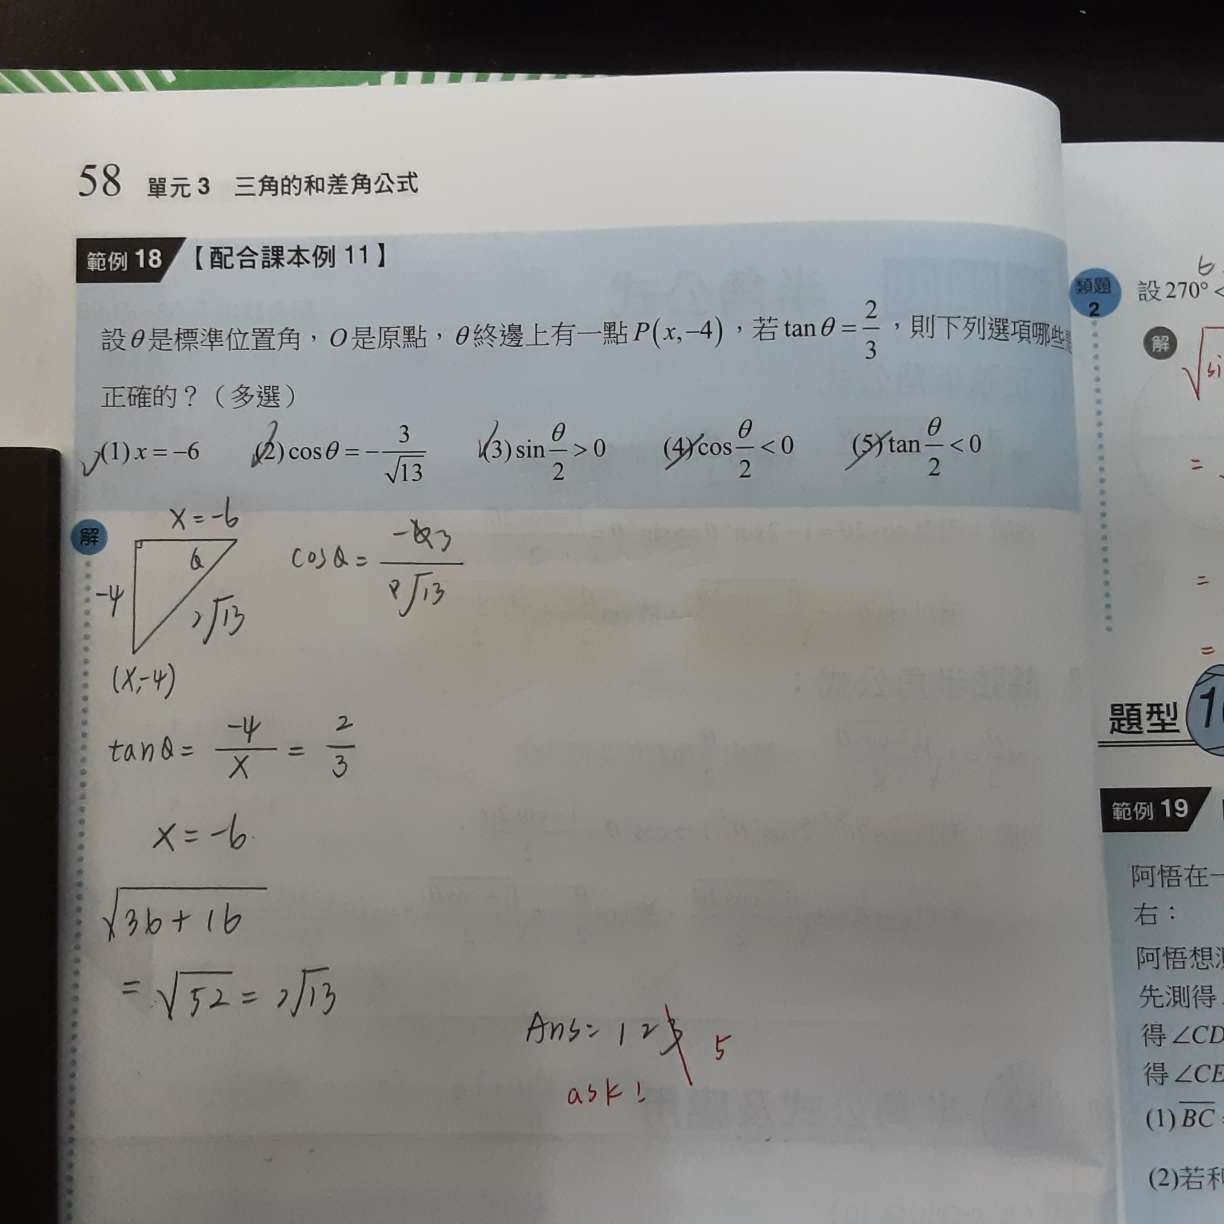 58 單元 3 三角的和差角公式
範例 18 【配合課本例 11】
設θ是標準位置角,O是原點,θ終邊上有一點P(x,−4),若 tanθ = 2/3,則下列選項哪些
正確的?(多選)
(1) x = −6 (2) cosθ = −3/√13 (3) sin θ/2 > 0 (4) cos θ/2 < 0 (5) tan θ/2 < 0
解
x = -6
-4
θ
2√13
(x,-4)
cosθ =
tanθ = -4/x = 2/3
x = -6
√36+16
= √52 = 2√13
Ans = 1 2 3 5
ask!
類題
2
設 270° <
解
=
=
=
題型
範例 19
阿悟在一
右:
阿悟想
先測得
得 ∠CD
得 ∠CE
(1) BC
(2)若利